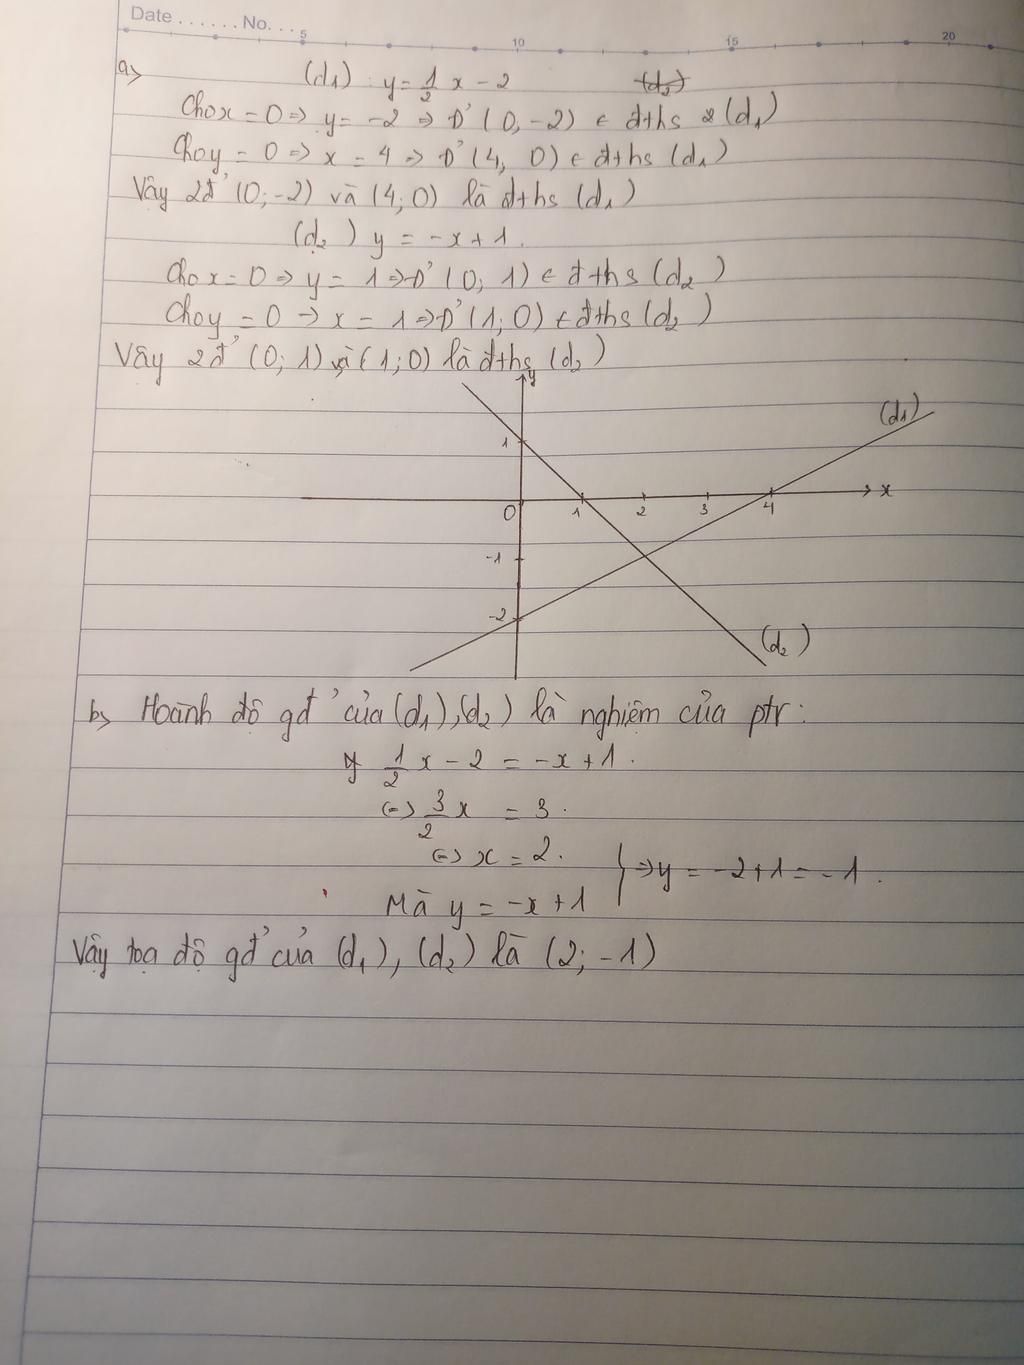 Date ...... No. ...
5 10 15 20
a> (d1) : y = 1/2 x - 2
Cho x = 0 => y = -2 => Đ' (0, -2) ∈ đths (d1)
Cho y = 0 => x = 4 => Đ' (4, 0) ∈ đths (d1)
Vậy 2đ' (0; -2) và (4; 0) là đths (d1)
(d2) y = -x + 1.
Cho x = 0 => y = 1 => Đ' (0; 1) ∈ đths (d2)
Cho y = 0 -> x = 1 => Đ' (1; 0) ∈ đths (d2)
Vậy 2đ' (0; 1) và (1; 0) là đths (d2)
y
(d1)
1
x
0 1 2 3 4
-1
-2
(d2)
b> Hoành độ gđ' của (d1), (d2) là nghiệm của ptr:
1/2 x - 2 = -x + 1.
<=> 3/2 x = 3.
<=> x = 2.
=> y = -2 + 1 = -1.
Mà y = -x + 1
Vậy toạ độ gđ' của (d1), (d2) là (2; -1)